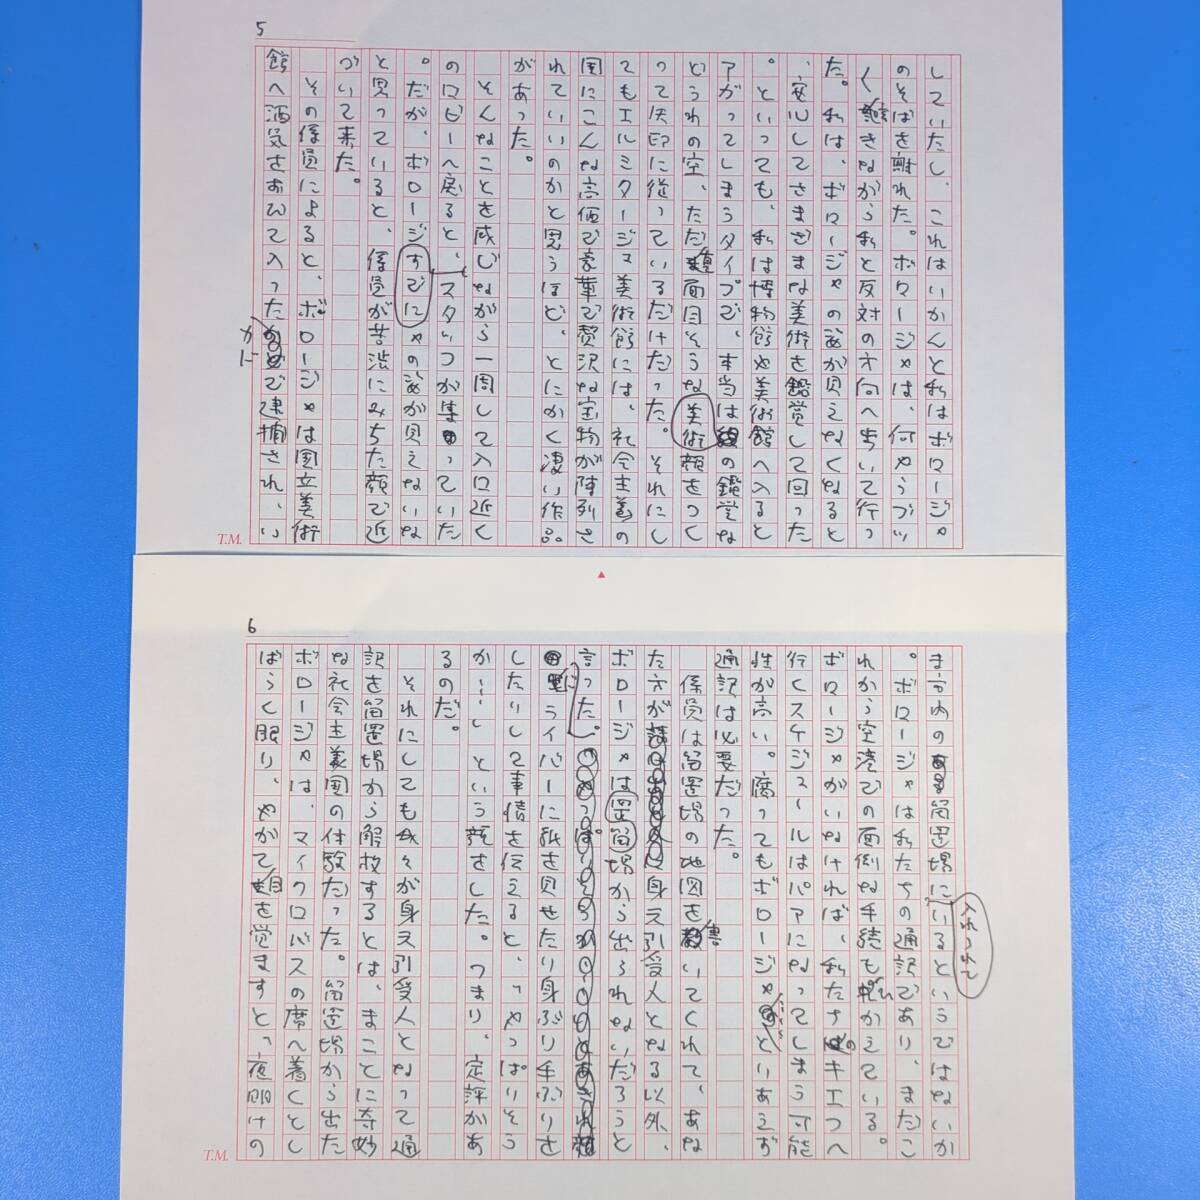 5
していたし、これはいかんと私はボロージャ
のそばを離れた。ボロージャは、何やらブツ
く 呟きながら私と反対の方向へ歩いて行っ
た。私は、ボロージャの姿が見えなくなると
、安心してさまざまな美術を鑑賞して回った
。といっても、私は博物館や美術館へ入ると
アがってしまうタイプで、本当は の鑑賞な
どうわの空、ただ 面目そうな美術顔をつく
って矢印に従っているだけだった。それにし
てもエルミタージュ美術館には、社会主義の
国にこんな高価で豪華で贅沢な宝物が陳列さ
れていいのかと思うほど、とにかく凄い作品
があった。
そんなことを感じながら一周して入口近く
のロビーへ戻ると、スタッフが集まっていた
。だが、ボロージすでにャの姿が見えないな
と思っていると、係員が苦渋にみちた顔で近
づいて来た。
その係員によると、ボロージャは国立美術
館へ酒気をおびて入ったかどで逮捕され、い
T.M.
6
ま市内の留置場に入れられているというではないか
。ボロージャは私たちの通訳であり、またこ
れから空港での面倒な手続もひかえている。
ボロージャがいなければ、私たちのキエフへ
行くスケジュールはパアになってしまう可能
性が高い。腐ってもボロージャ、とりあえず
通訳は必要だった。
係員は留置場の地図を書いてくれて、あな
たたが 身元引受人となる以外、
ボロージャは置留場から出られないだろうと
言った。
ドライバーに紙を見せたり身ぶり手ぶりを
したりして事情を伝えると、やっぱりそう
か……という顔をした。つまり、定評があ
るのだ。
それにしても我々が身元引受人となって通
訳を留置場から解放するとは、まことに奇妙
な社会主義国の体験だった。留置場から出た
ボロージャは、マイクロバスの席へ着くとし
ばらく眠り、やがて目を覚ますと、夜明けの
T.M.